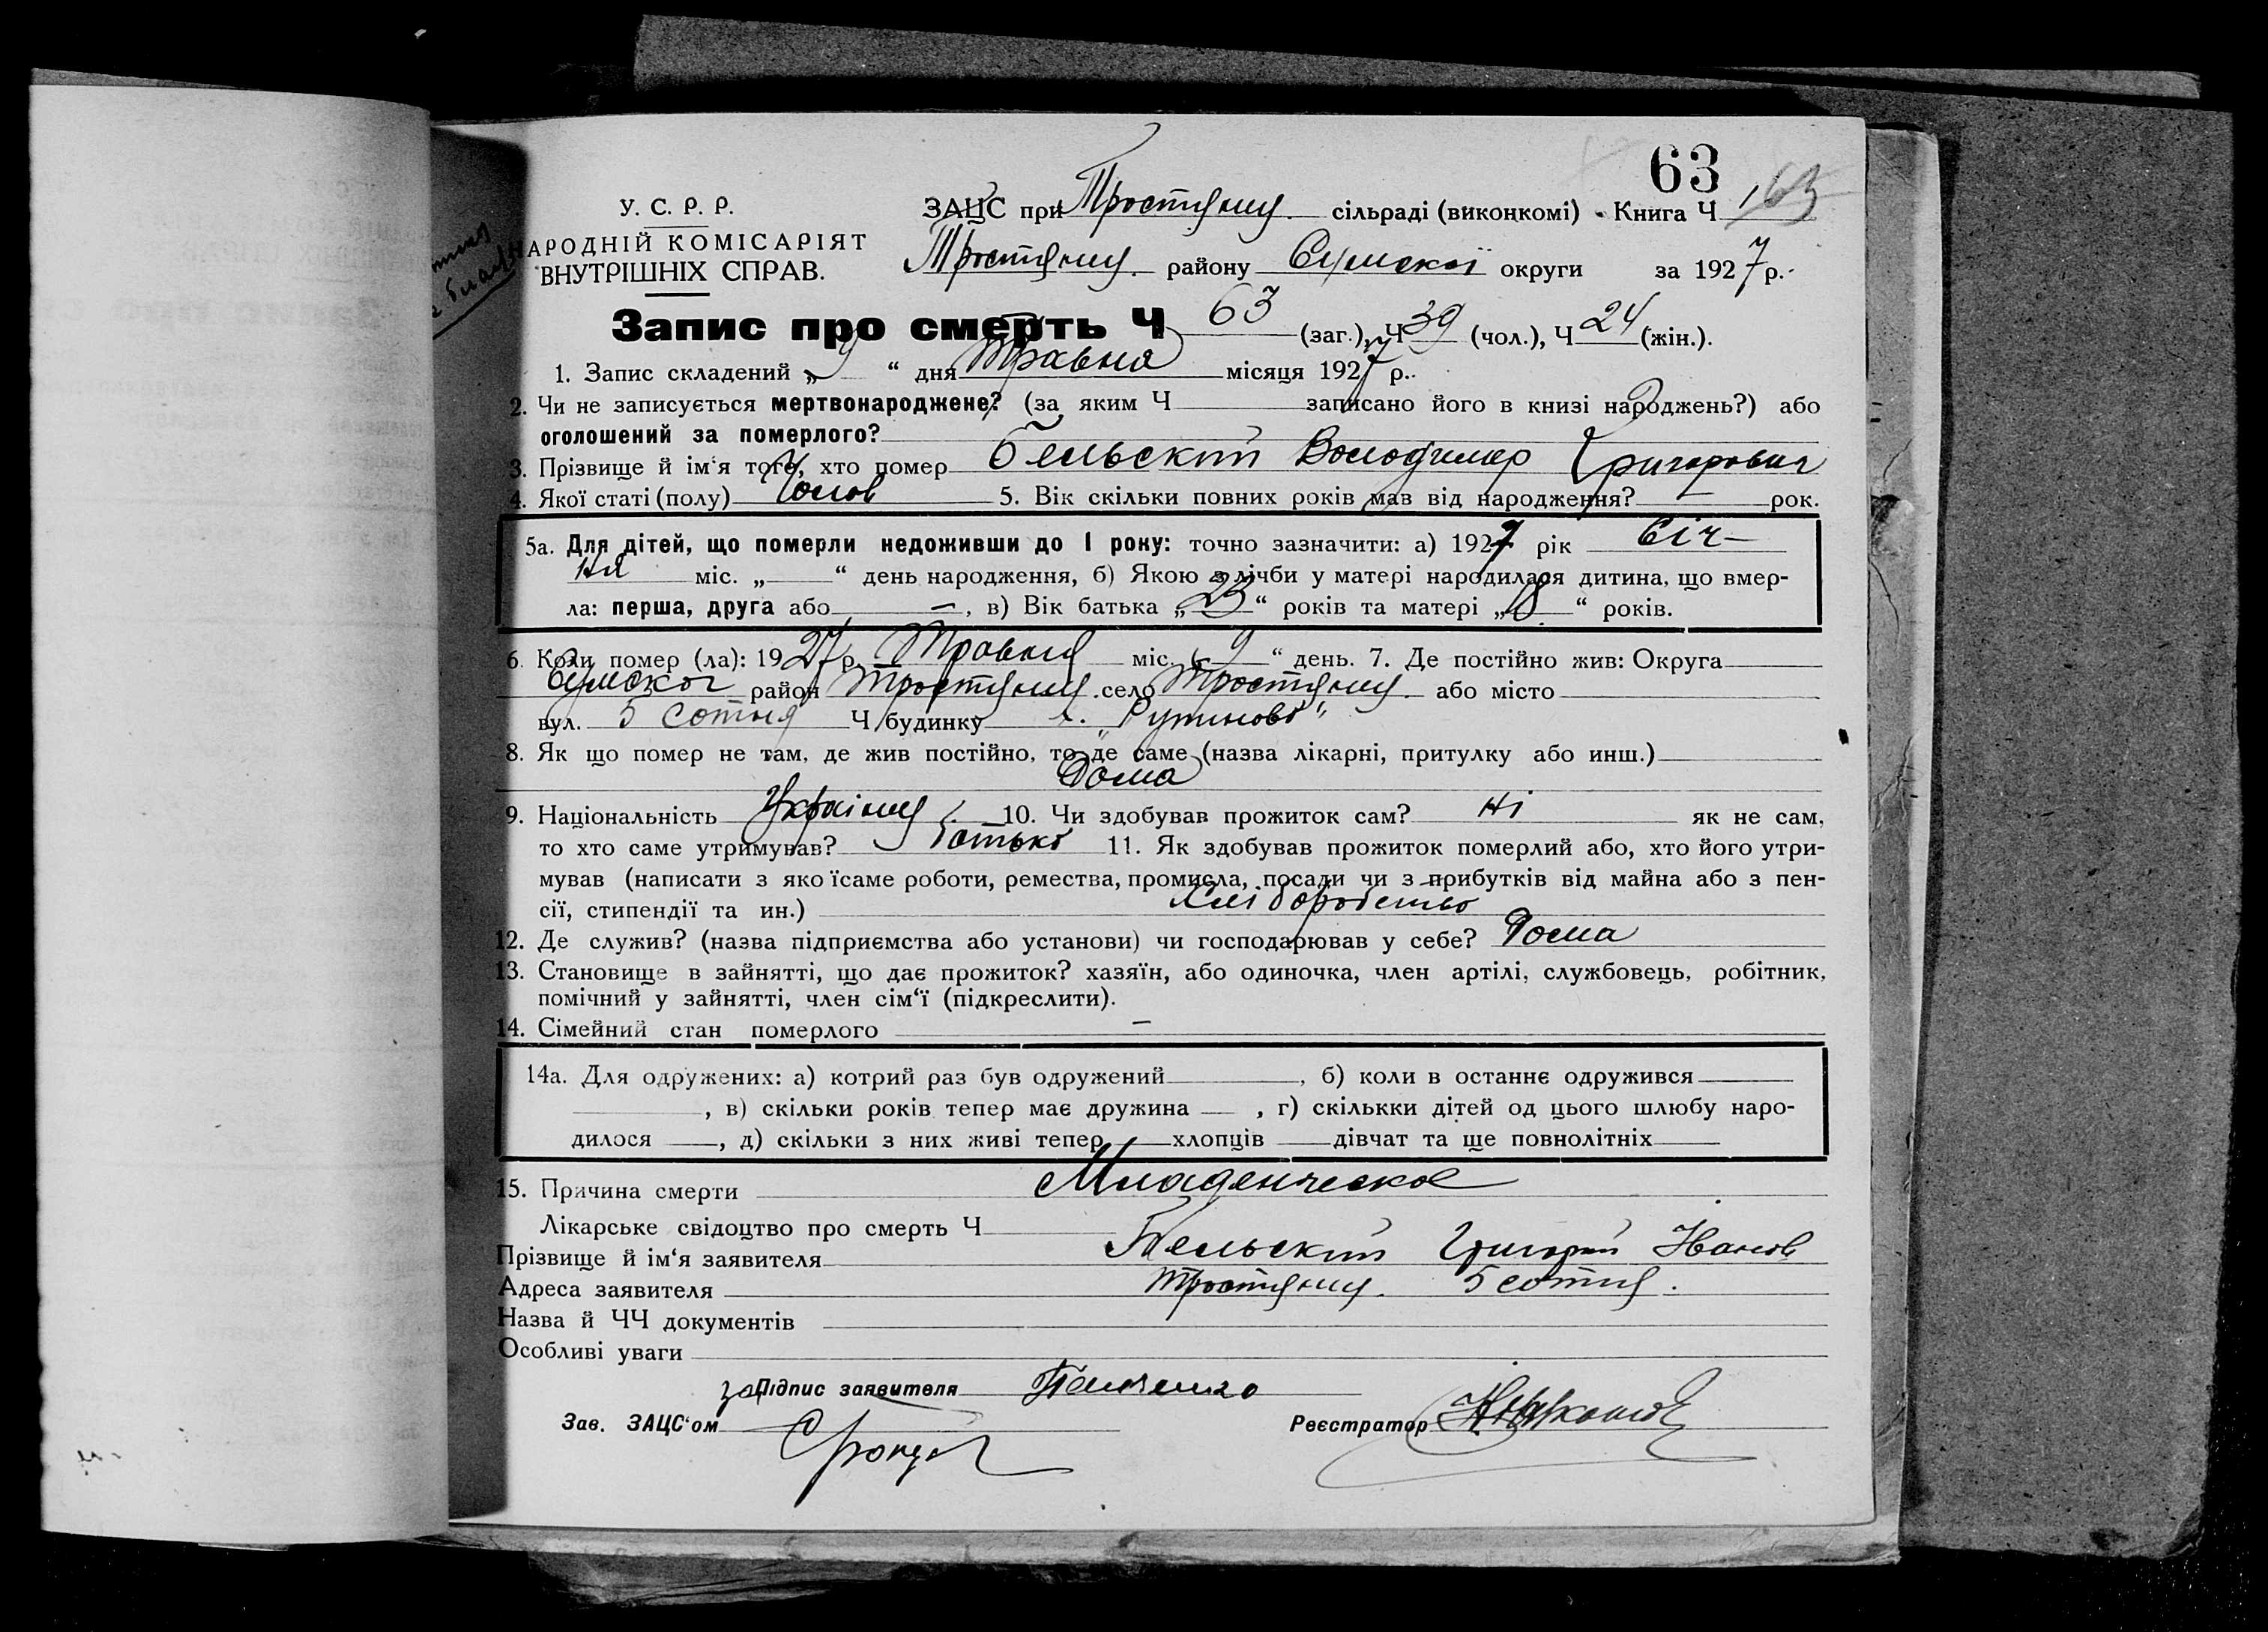 63
У. С. Р. Р.
ЗАЦС при Тростянец. сільраді (виконкомі) Книга Ч 1
НАРОДНІЙ КОМІСАРІЯТ
ВНУТРІШНІХ СПРАВ.
Тростянец. району Сумської округи за 1927 р.
Запис про смерть Ч 63 (заг.), Ч 39 (чол.), Ч 24 (жін.).
1. Запис складений „9“ дня Травня місяця 1927 р.
2. Чи не записується мертвонароджене? (за яким Ч записано його в книзі народжень?) або
оголошений за померлого?
3. Прізвище й ім‘я того, хто помер Бельский Володимер Григорович
4. Якої статі (полу) Чолов 5. Вік скільки повних років мав від народження? — рок.
5а. Для дітей, що померли недоживши до 1 року: точно зазначити: а) 1927 рік Січ-
ня міс. „ “ день народження, б) Якою з лічби у матері народилася дитина, що вмер-
ла: перша, друга або —, в) Вік батька „23“ років та матері „18“ років.
6. Коли помер (ла): 1927 р. Травня міс. „9“ день. 7. Де постійно жив: Округа
Сумског район Тростянец. село Тростянец. або місто
вул. 5 сотня Ч будинку х.
8. Як що помер не там, де жив постійно, то де саме (назва лікарні, притулку або инш.)
Дома
9. Національність Українец. 10. Чи здобував прожиток сам? Ні як не сам,
то хто саме утримував? батько 11. Як здобував прожиток померлий або, хто його утри-
мував (написати з яко їсаме роботи, ремества, промисла, посади чи з прибутків від майна або з пен-
сії, стипендії та ин.) Хліборобство
12. Де служив? (назва підприємства або установи) чи господарював у себе? Дома
13. Становище в зайнятті, що дає прожиток? хазяїн, або одиночка, член артілі, службовець, робітник,
помічний у зайнятті, член сім‘ї (підкреслити).
14. Сімейний стан померлого —
14а. Для одружених: а) котрий раз був одружений , б) коли в останнє одружився
, в) скільки років тепер має дружина , г) скількки дітей од цього шлюбу наро-
дилося , д) скільки з них живі тепер хлопців дівчат та ще повнолітніх
15. Причина смерти Младенческое
Лікарське свідоцтво про смерть Ч
Прізвище й ім‘я заявителя Бельский Григорий Иванов
Адреса заявителя Тростянец. 5 сотня.
Назва й ЧЧ документів
Особливі уваги
за Підпис заявителя
Зав. ЗАЦС‘ом
Реєстратор